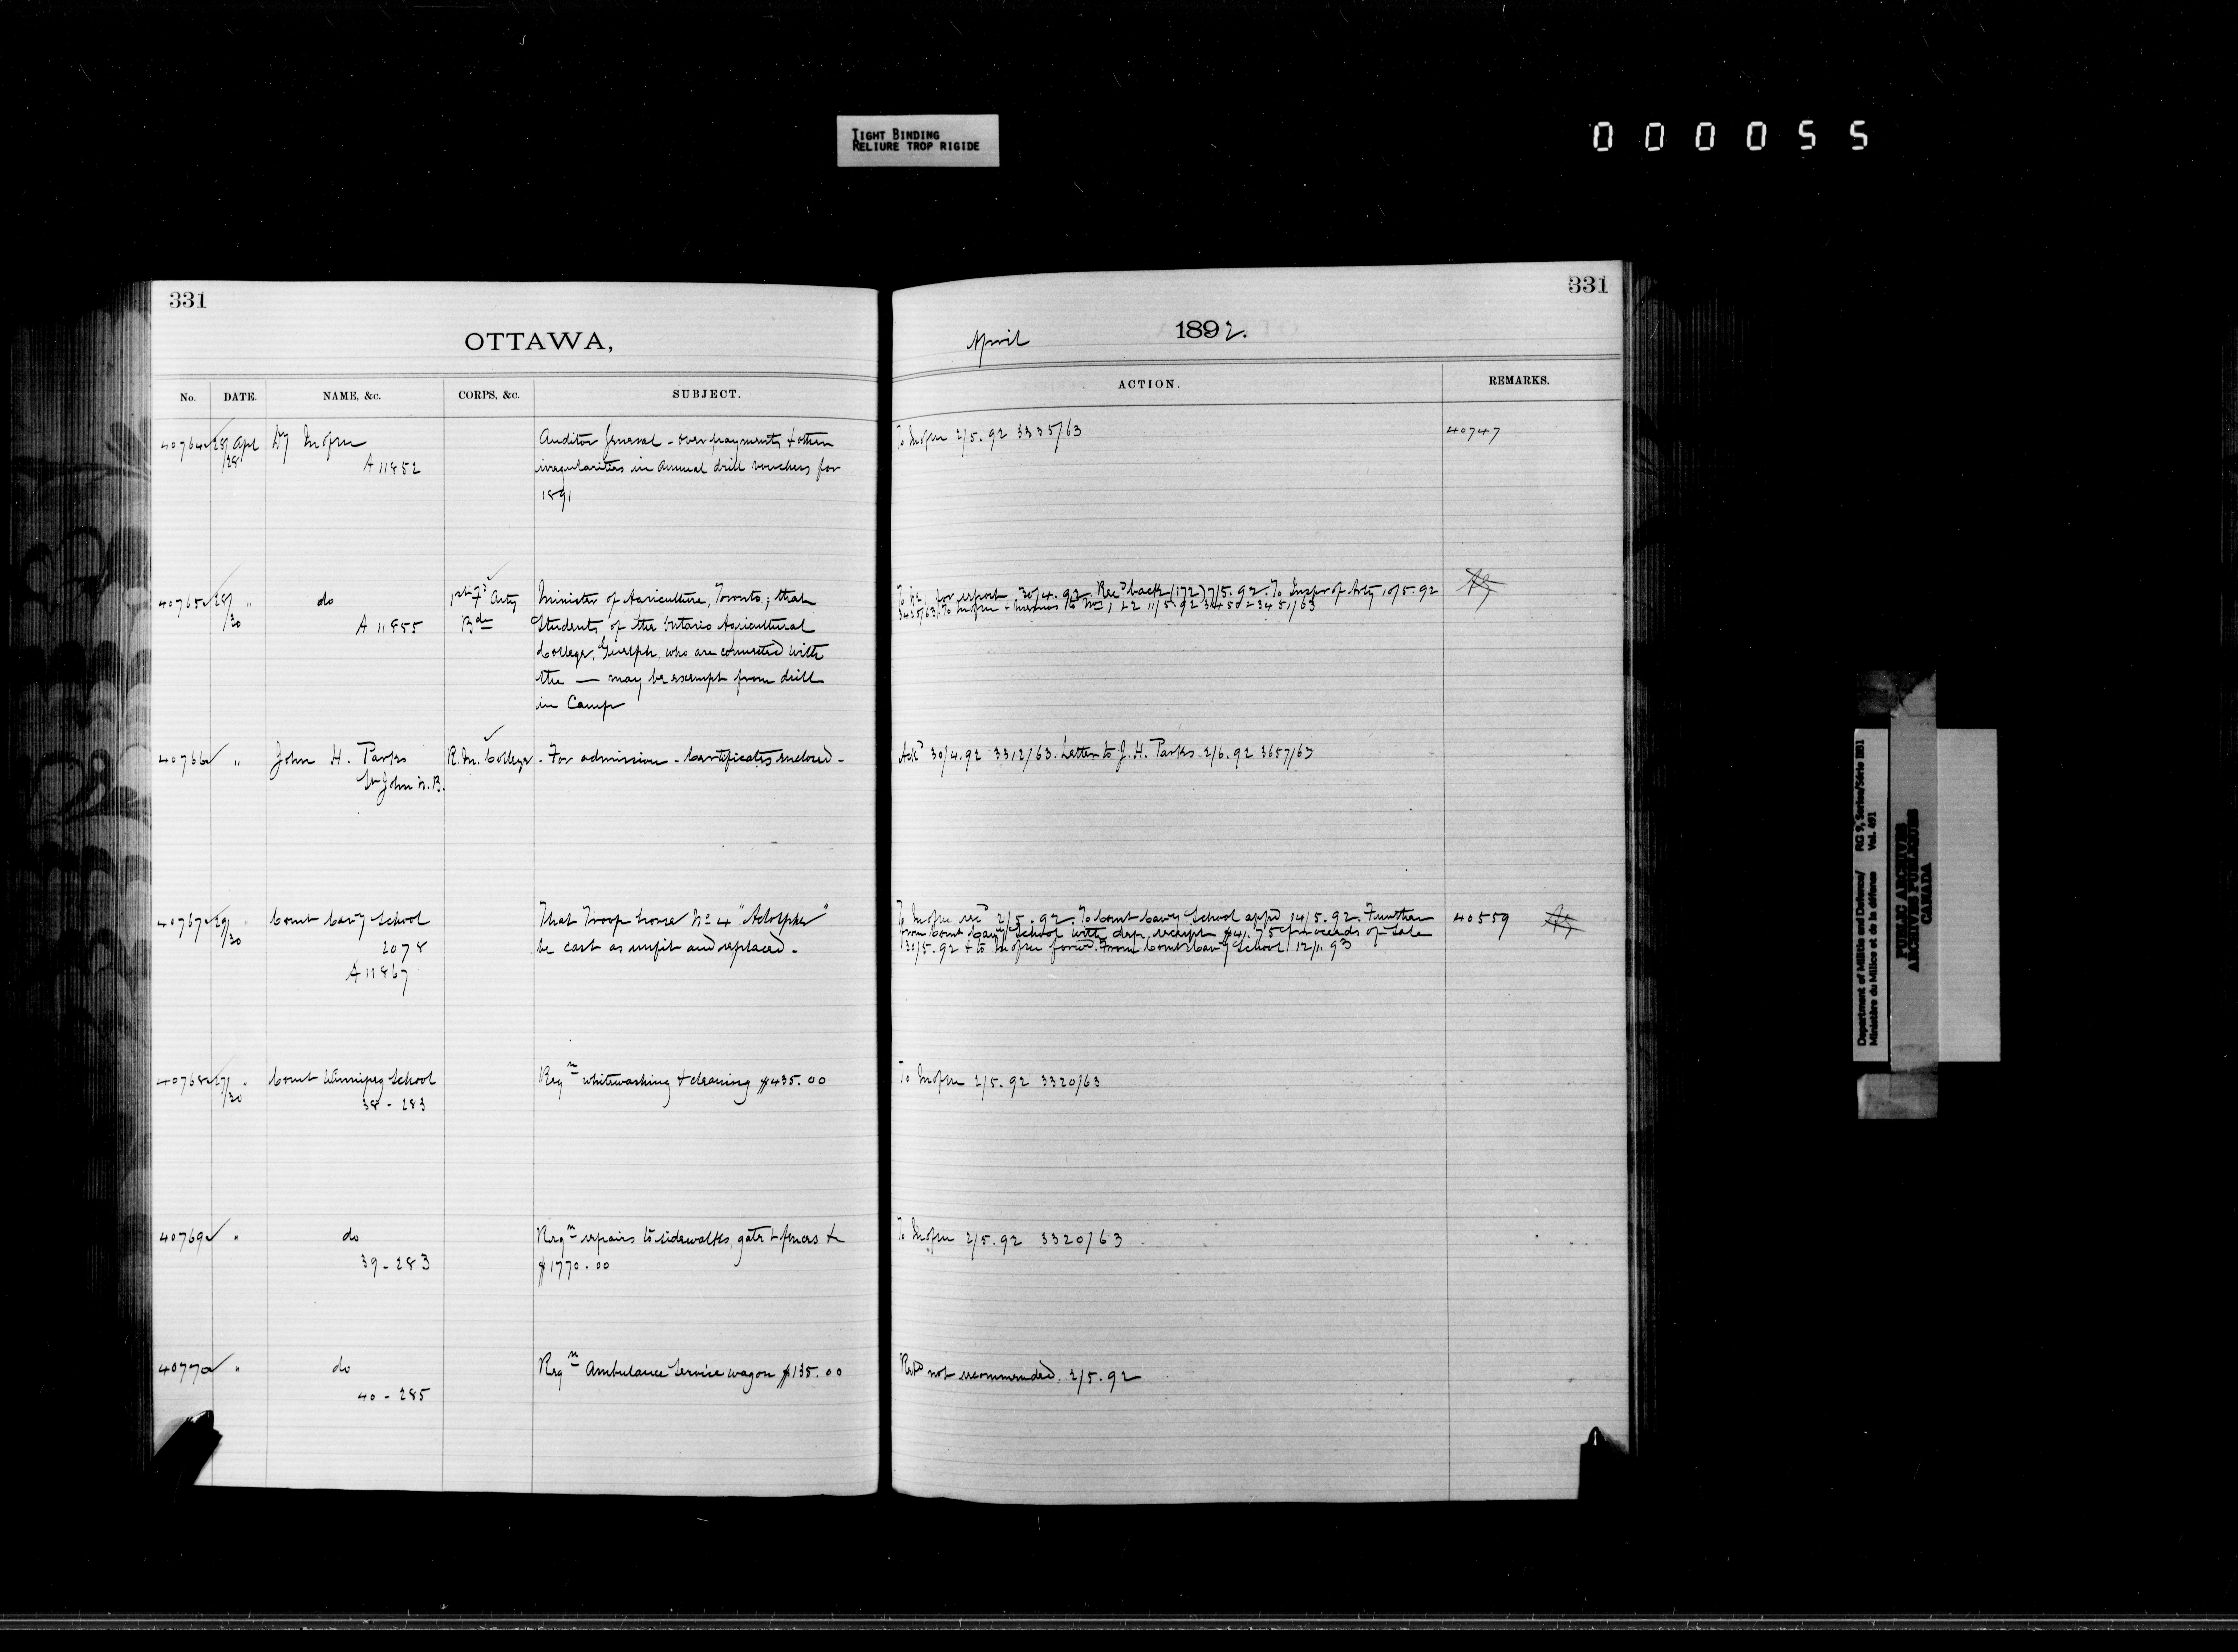 TIGHT BINDING
RELIURE TROP RIGIDE
000055
331
OTTAWA,
No. DATE. NAME, &c. CORPS, &c. SUBJECT.
40764 28/28 Apl Dy M of M A 11852 Auditor General - over payments & other
irregularities in annual drill vouchers for
1891
40765 28/30 " do 1st Fd Arty Minister of Agriculture, Toronto; that
A 11855 Bde Students of the Ontario Agricultural
College, Guelph, who are connected with
the — may be exempt from drill
in Camp
40766 " John H. Parks R.M. College - For admission - Certificates enclosed -
St John N.B.
40767 29/30 " Comt Cavy School That Troop horse No 4 "Adolphus"
2078 be cast as unfit and replaced -
A 11867
40768 27/30 " Comt Winnipeg School Reqn whitewashing & cleaning $435.00
38 - 283
40769 " do Reqn repairs to sidewalks, gate & fences &c
39 - 283 $1770.00
40770 " do Reqn Ambulance Service wagon $135.00
40 - 285
331
April 1892.
ACTION. REMARKS.
To M of M 2/5.92 3335/63 40747
for report 30/4.92. Recd back (172) 7/5.92. To Inspr of Arty 10/5.92
3425/63. To M of M - memos to Nos 1 & 2 11/5.92 3450 & 3451/63
Ackd 30/4.92 3312/63. Letter to J. H. Parks 2/6.92 3657/63
To M of M recd 2/5.92. To Comt Cavy School appd 14/5.92. Further 40559
from Comt Cavy School with dep. receipt $41.75 proceeds of sale
30/5.92 & to M of M forwd. From Comt Cavy School 12/1.93
To M of M 2/5.92 3320/63
To M of M 2/5.92 3320/63
not recommended. 2/5.92
Department of Militia and Defence/ RG 9, Series/Série IIB1
Ministère du Milice et de la défense Vol. 491
PUBLIC ARCHIVES
ARCHIVES PUBLIQUES
CANADA